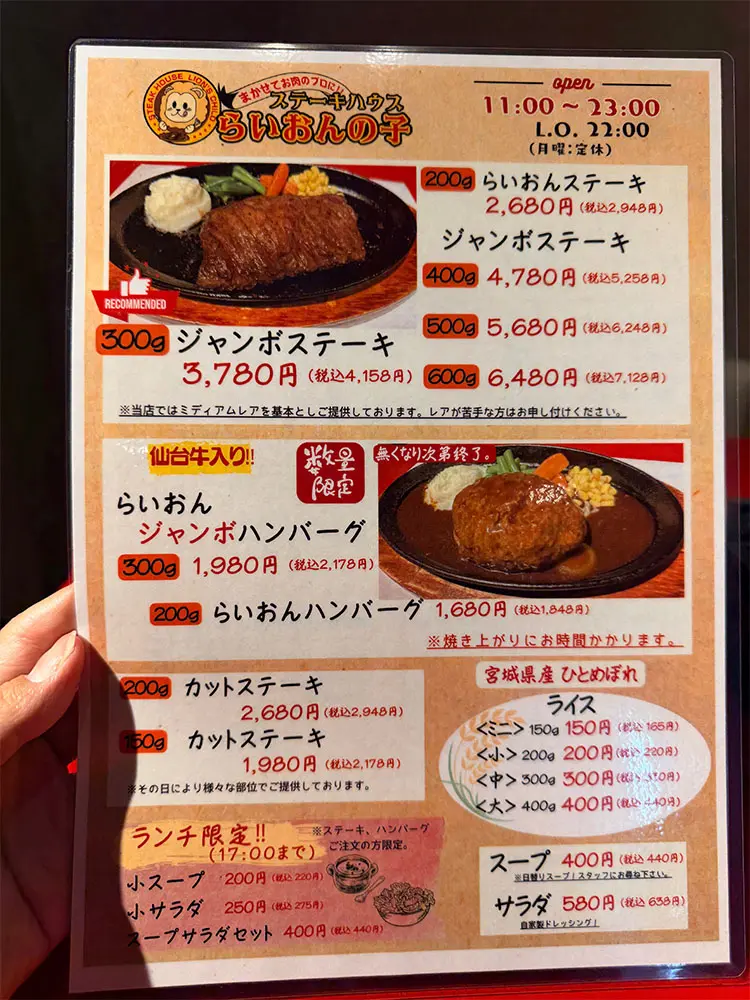 STEAK HOUSE LION'S CHILD
まかせてお肉のプロに!!
ステーキハウス
らいおんの子
open
11:00～23:00
L.O. 22:00
(月曜:定休)
RECOMMENDED
300g ジャンボステーキ
3,780円(税込4,158円)
200g らいおんステーキ
2,680円(税込2,948円)
ジャンボステーキ
400g 4,780円(税込5,258円)
500g 5,680円(税込6,248円)
600g 6,480円(税込7,128円)
※当店ではミディアムレアを基本としご提供しております。レアが苦手な方はお申し付けください。
仙台牛入り!!
数量
限定
無くなり次第終了。
らいおん
ジャンボハンバーグ
300g 1,980円(税込2,178円)
200g らいおんハンバーグ 1,680円(税込1,848円)
※焼き上がりにお時間かかります。
200g カットステーキ
2,680円(税込2,948円)
150g カットステーキ
1,980円(税込2,178円)
※その日により様々な部位でご提供しております。
宮城県産 ひとめぼれ
ライス
<ミニ>150g 150円(税込165円)
<小>200g 200円(税込220円)
<中>300g 300円(税込330円)
<大>400g 400円(税込440円)
ランチ限定!!
(17:00まで)
※ステーキ、ハンバーグ
ご注文の方限定。
小スープ 200円(税込220円)
小サラダ 250円(税込275円)
スープサラダセット 400円(税込440円)
スープ 400円(税込440円)
※日替りスープ!スタッフにお尋ね下さい。
サラダ 580円(税込638円)
自家製ドレッシング!